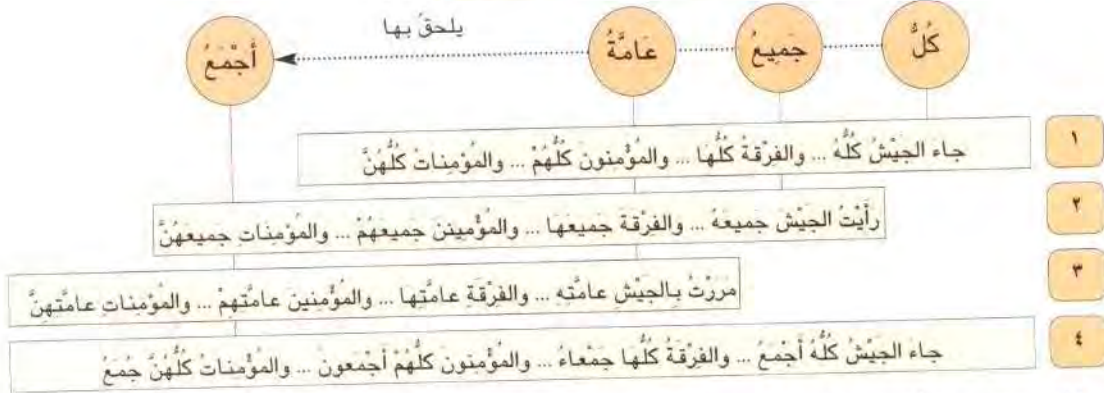 كُلُّ جَمِيعُ عَامَّةُ يلحقُ بها أَجْمَعُ
١ جاء الجَيْشُ كُلُّهُ ... والفِرْقةُ كُلُّها ... والمُؤْمنونَ كُلُّهُمْ ... والمُؤمِناتُ كُلُّهُنَّ
٢ رأَيْتُ الجَيْشَ جَميعَهُ ... والفِرْقةَ جَميعَها ... والمُؤْمِنينَ جَميعَهُمْ ... والمُؤمِناتِ جميعَهُنَّ
٣ مَرَرْتُ بِالجَيْشِ عامَّتِهِ ... والفِرْقَةِ عامَّتِها ... والمُؤْمِنينَ عامَّتِهِمْ ... والمُؤمِناتِ عامَّتِهِنَّ
٤ جاء الجَيْشُ كُلُّهُ أَجْمَعُ ... والفِرْقةُ كُلُّها جَمْعاءُ ... والمُؤْمِنونَ كلُّهُمْ أَجْمَعونَ ... والمُؤمِناتُ كُلُّهُنَّ جُمَعُ